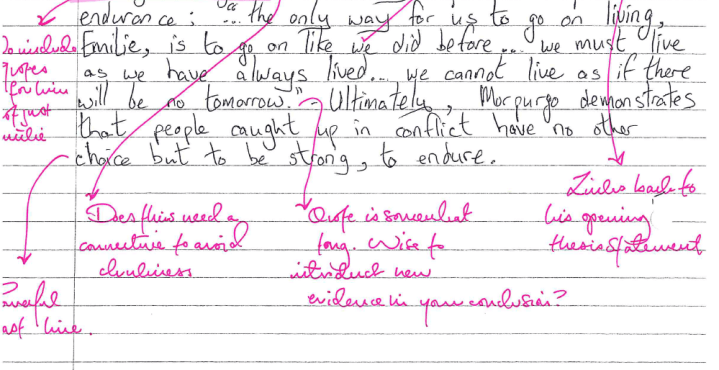 endurance: "... the only way for us to go on living,
Emilie, is to go on like we did before... we must live
as we have always lived... we cannot live as if there
will be no tomorrow." - Ultimately, Morpurgo demonstrates
that people caught up in conflict have no other
choice but to be strong, to endure.
to include
quotes
of just
Links back to
his opening
thesis statement
Does this need a
connective to avoid
clunkiness
Quote is somewhat
long. Wise to
introduce new
evidence in your conclusion?
last line.